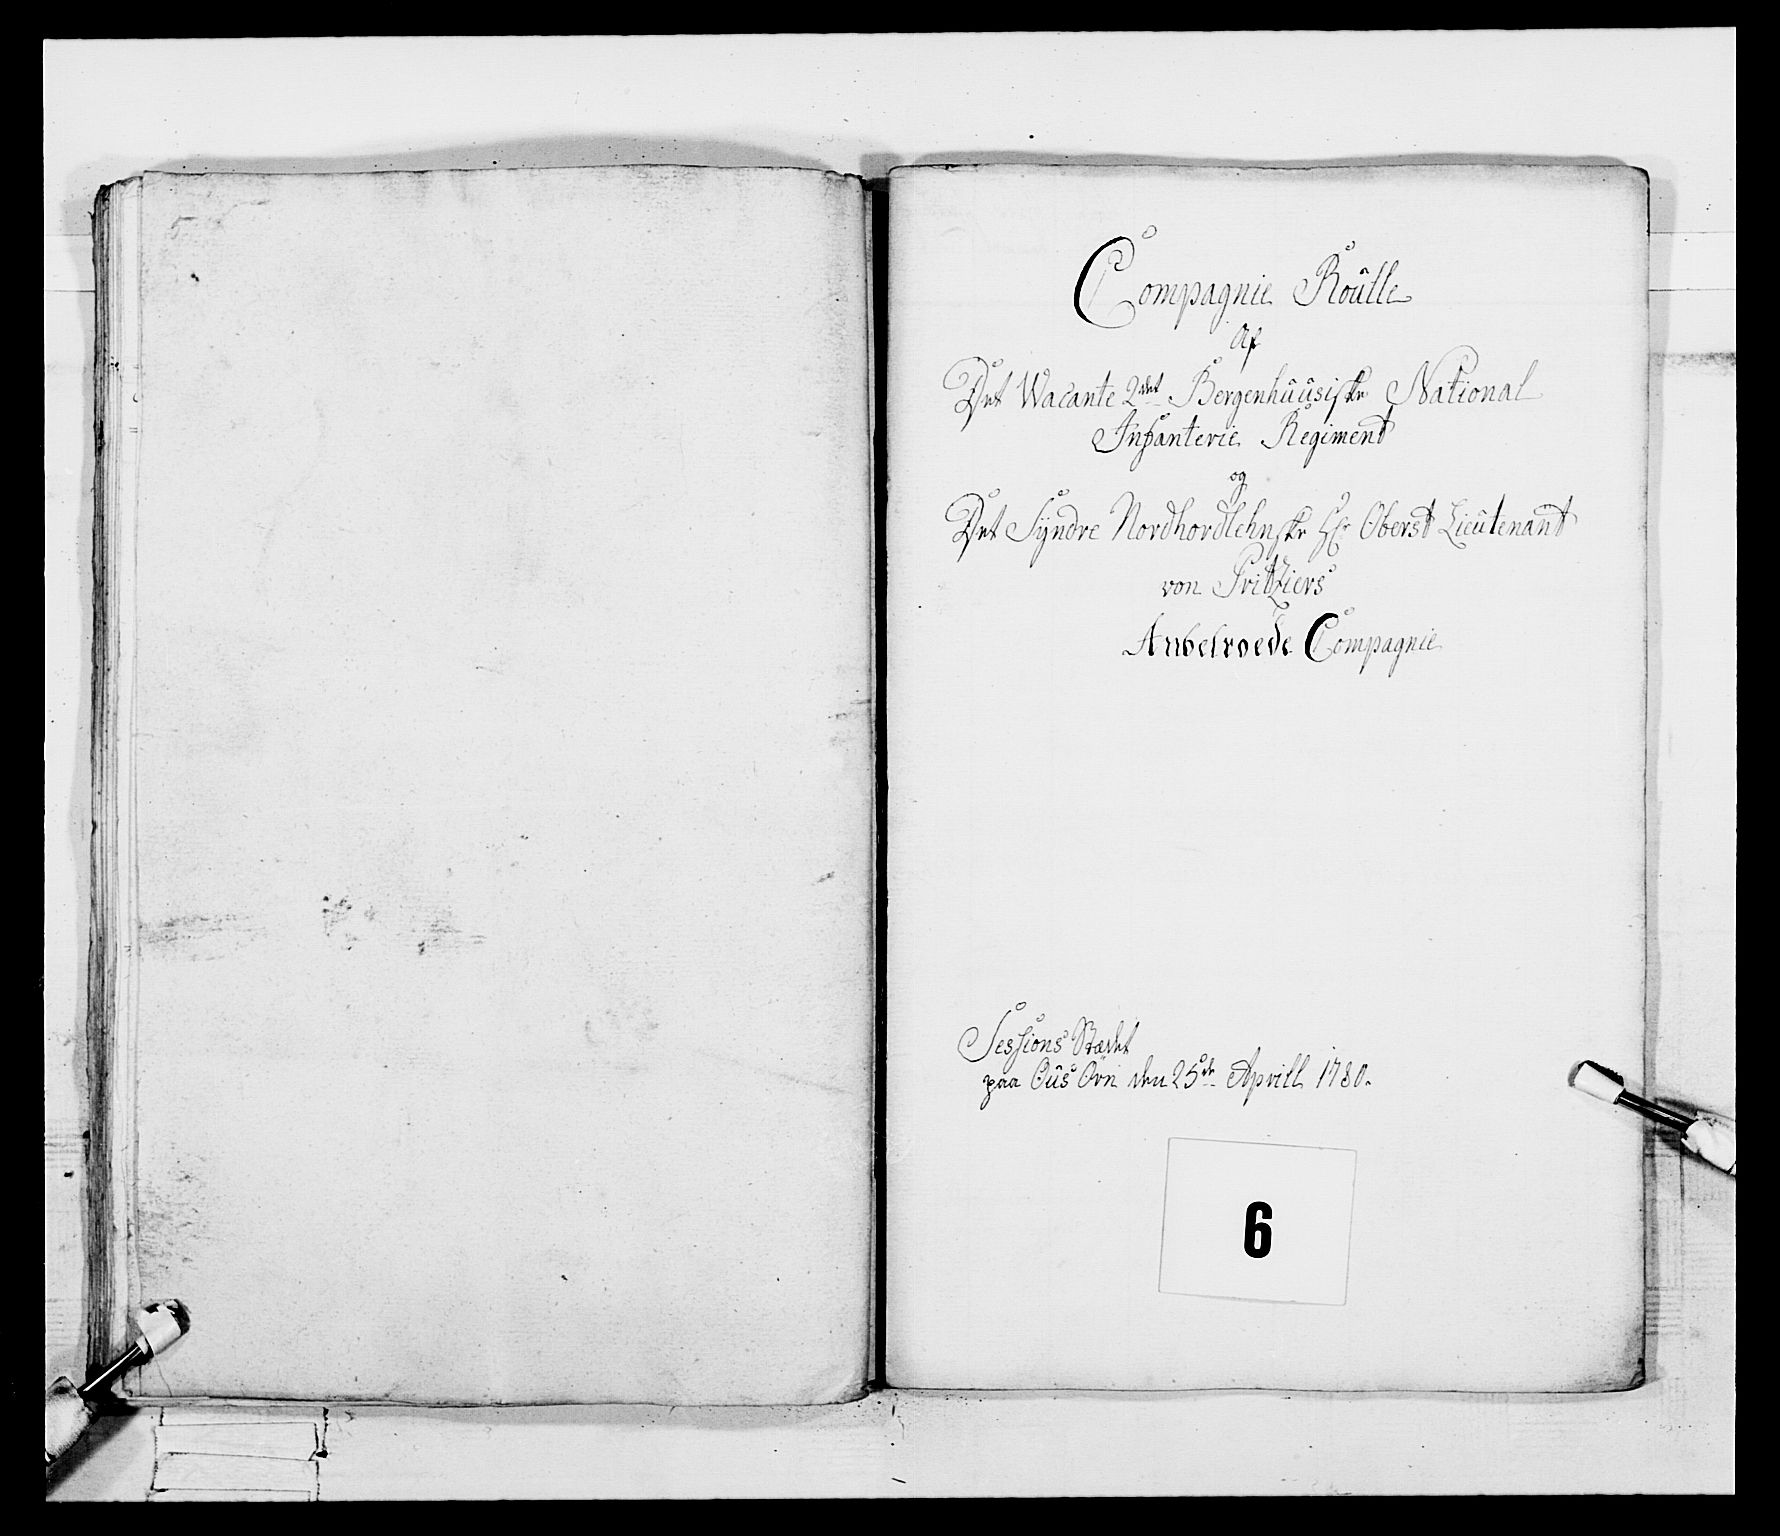 Compagnie Roulle
Af
Det Wacante 2det Bergenhuusiske National
Infanterie Regiment
og
Det Syndre Nordhordlehnske Hr Oberst Lieutenant
von Fritziers
Anbetroede Compagnie
Sessions Stædet
paa Ous Ørn den 25de Aprill 1780.
6